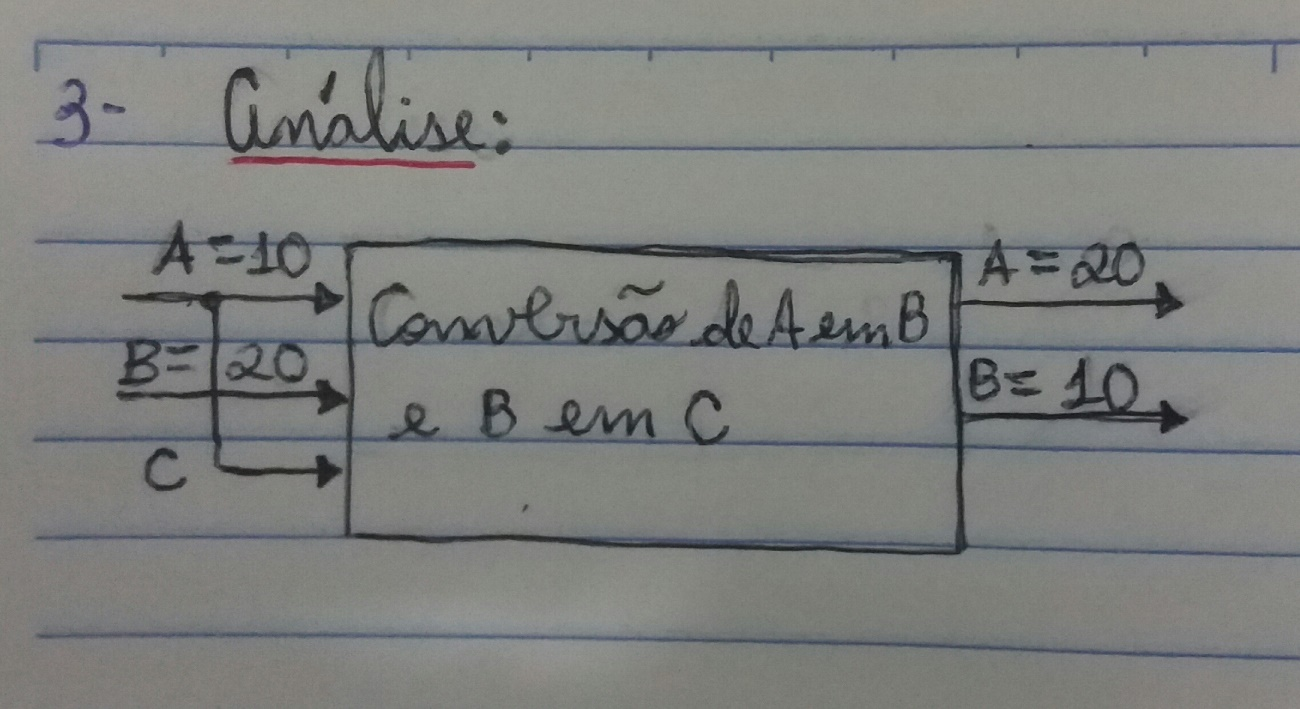 3- Análise:
A = 10
B = 20
C
Conversão de A em B
e B em C
A = 20
B = 10